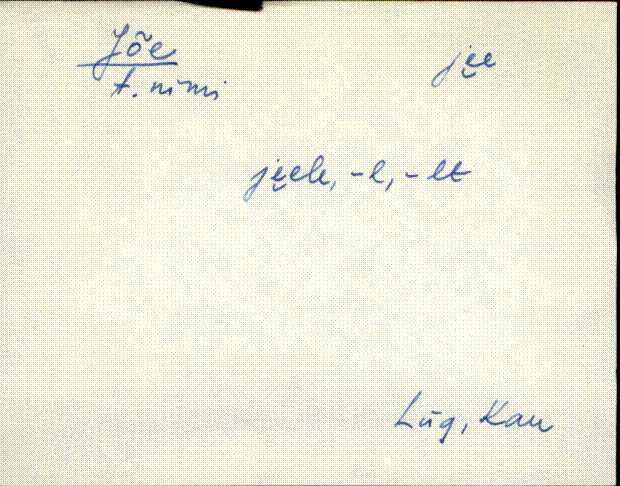 Jõe
jẹe
t. nimi
jẹele, -l, -lt
Lüg, Kau